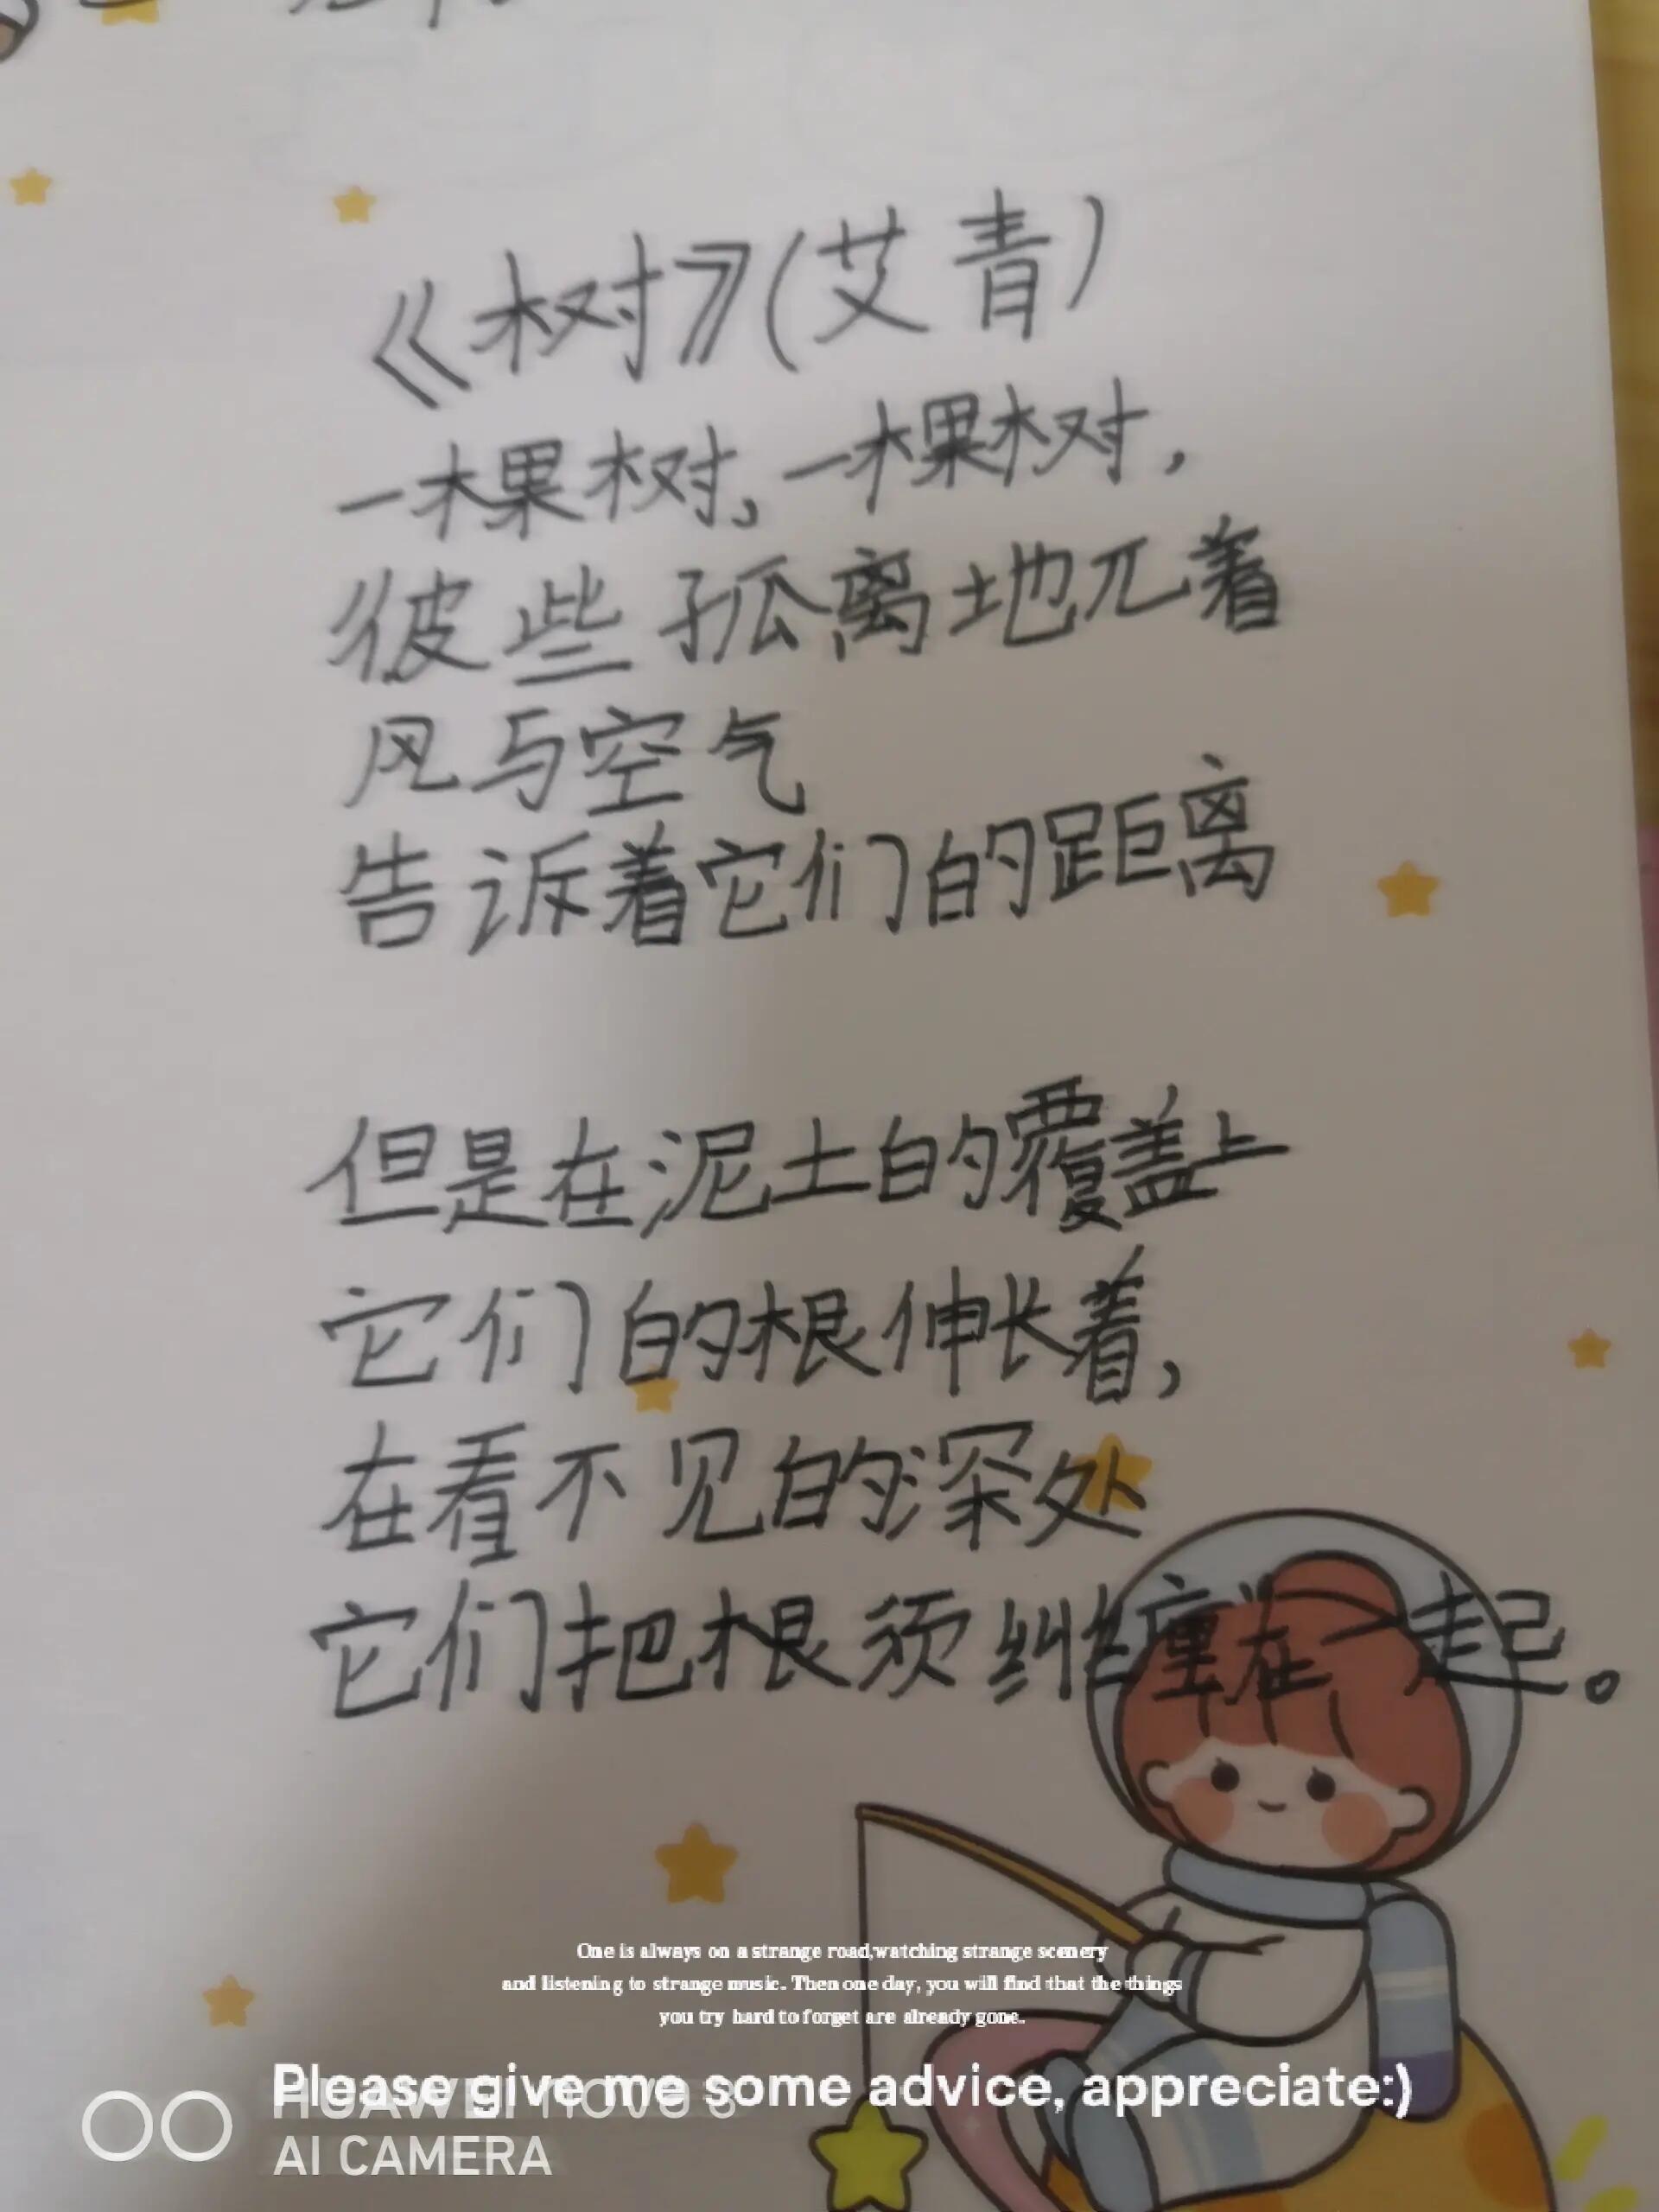 《树》(艾青)
一棵树,一棵树,
彼些孤离地兀着
风与空气
告诉着它们的距离
但是在泥土的覆盖上
它们的根伸长着,
在看不见的深处
它们把根须纠缠在一起。
One is always on a strange road,watching strange scenery
and listening to strange music. Then one day, you will find that the things
you try hard to forget are already gone.
Please give me some advice, appreciate:)
HUAWEI nova 3
AI CAMERA